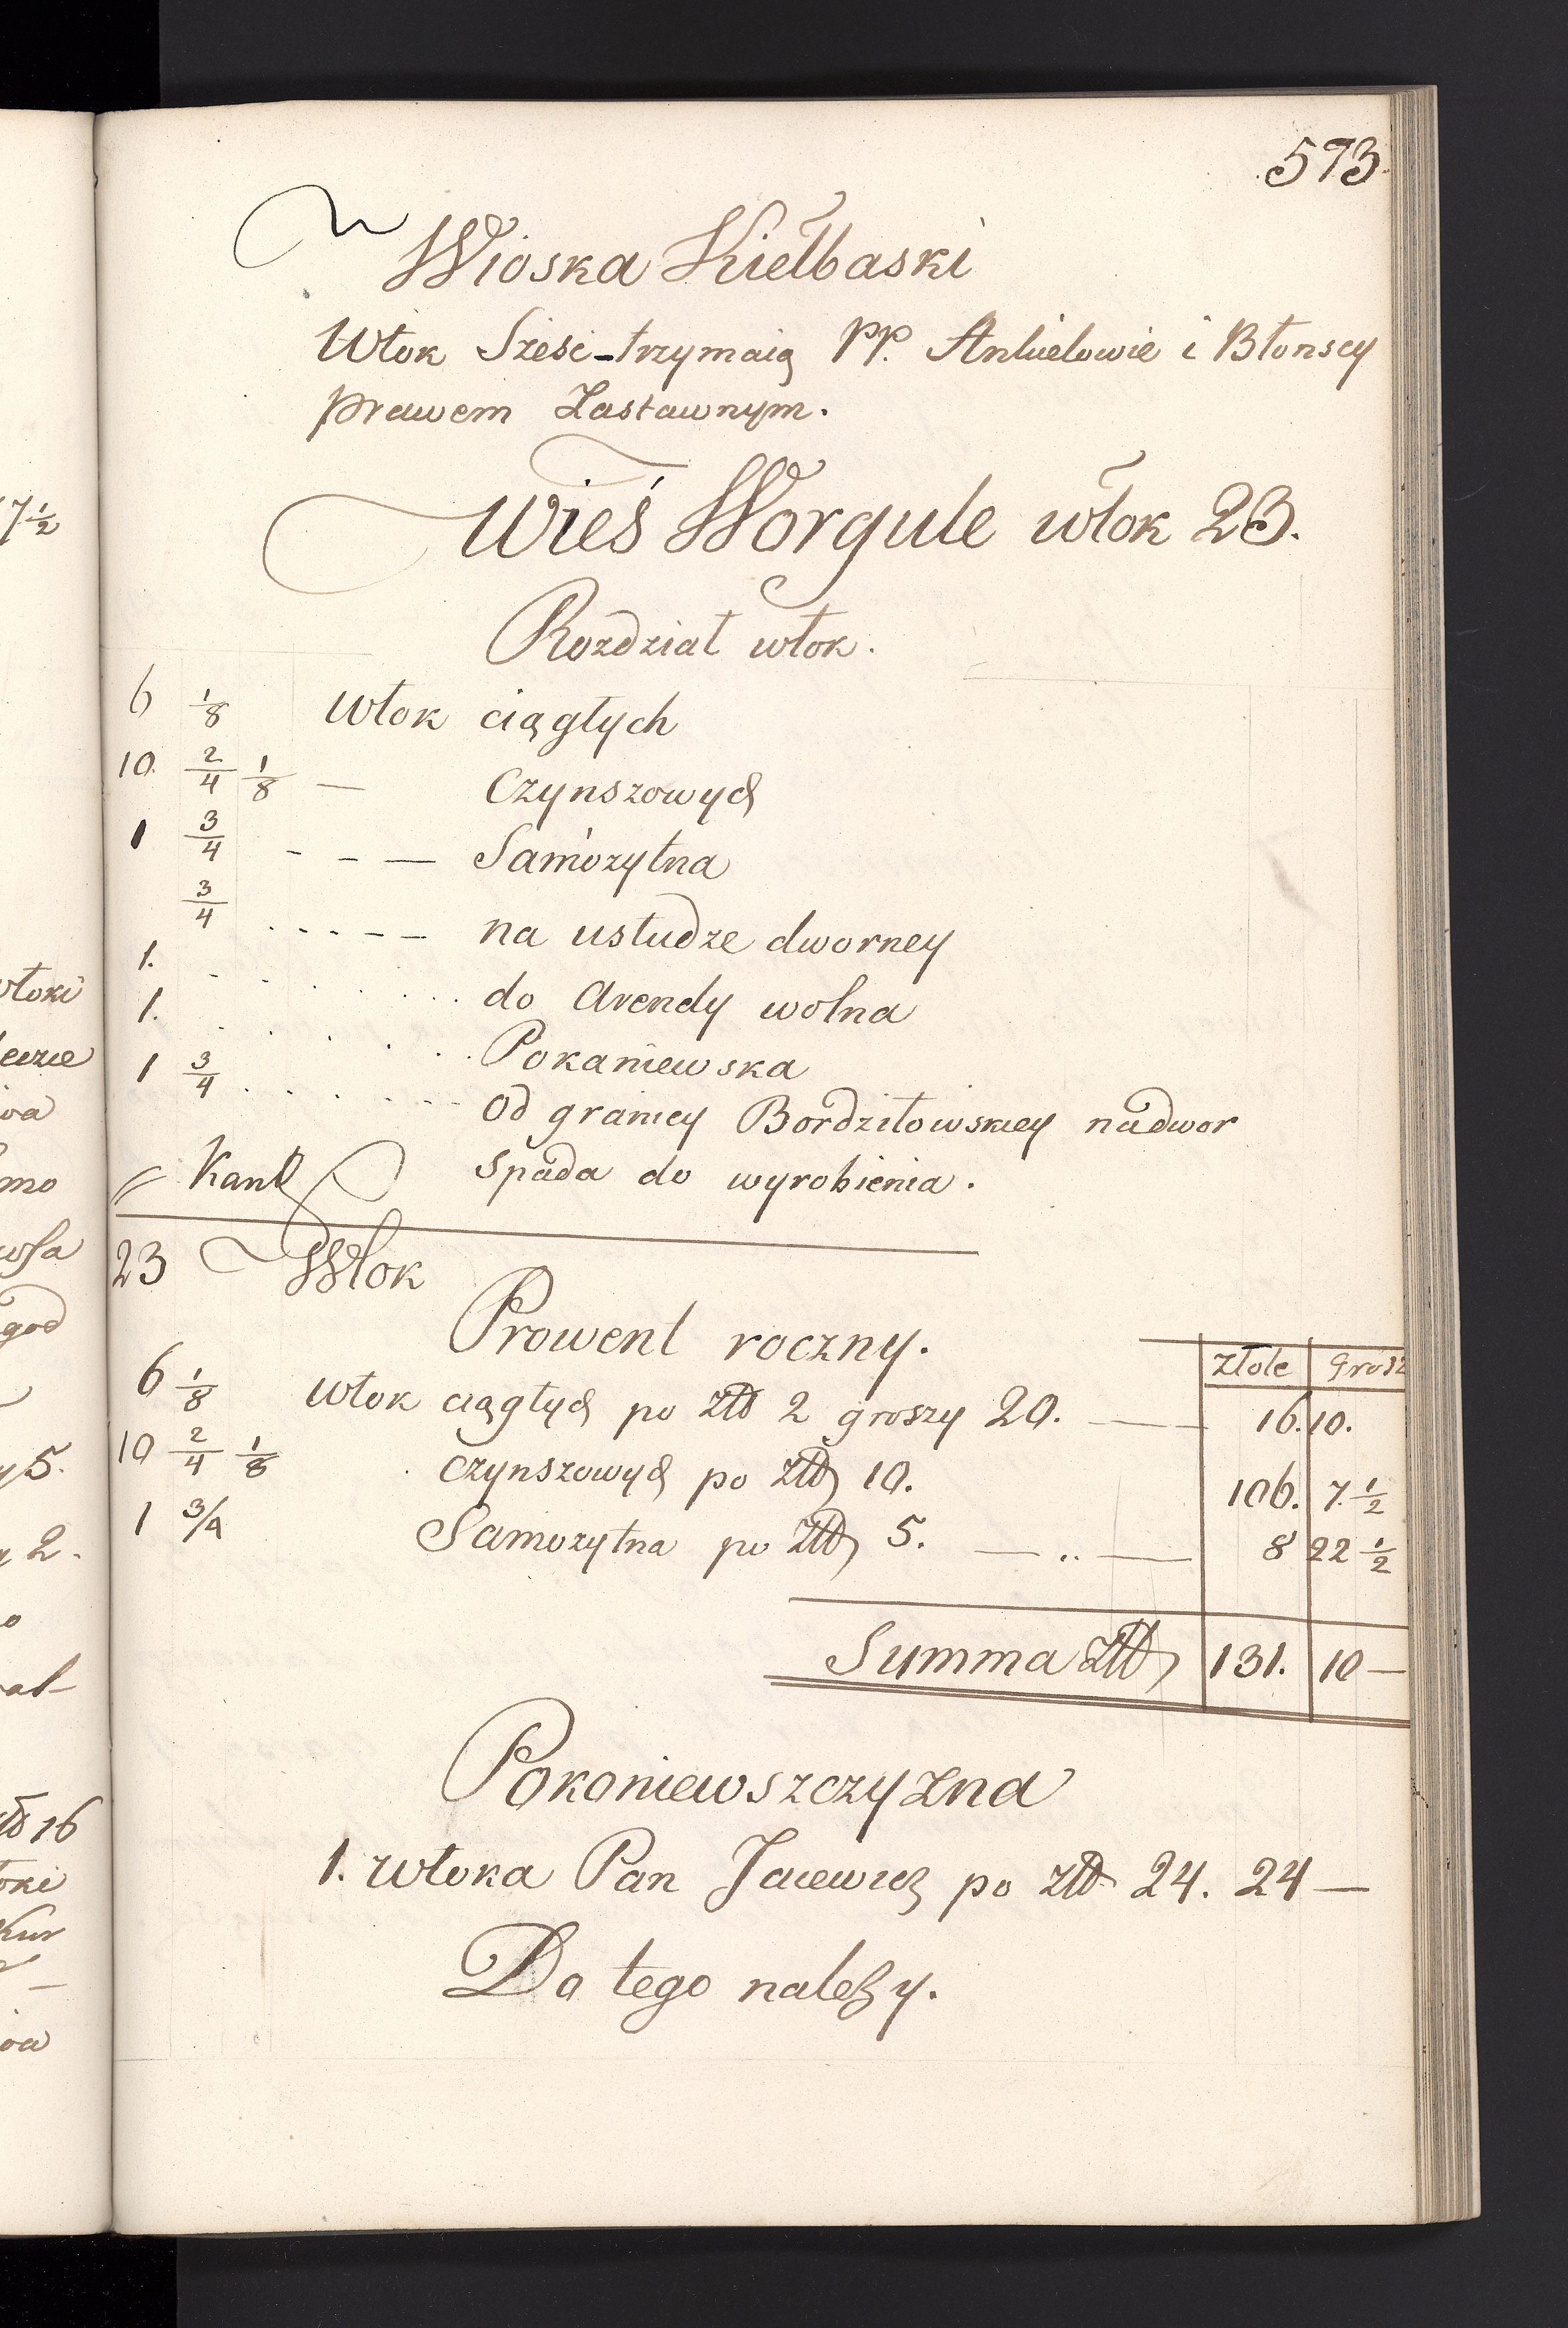 573
Wioska Kiełbaski
Włok Sześć trzymaią PP. Ankielowie i Błonscy
prawem Zastawnym.
Wieś Worgule włok 23.
Rozdział włok.
6 1/8 Włok ciągłych
10. 2/4 1/8 — Czynszowych
1 3/4 - - — Samożytna
3/4 - - - - — na usłudze dworney
1. do Arendy wolna
1. Pokaniewska
1 3/4 od granicy Bordziłowskiey nadwor
spada do wyrobienia.
23 Włok
Prowent roczny.
Złote Grosz
6 1/8 Włok ciągłych po złt 2 groszy 20. — 16. 10.
10 2/4 1/8 czynszowych po złt 10. 106. 7. 1/2
1 3/4 Samozytna po złt 5. — .. — 8 22 1/2
Summa złt 131. 10 —
Pokoniewszczyzna
1. włoka Pan Jacewicz po złt 24. 24 —
Do tego należy.
7 1/2
włoki
wa
mo
god
y 5.
y 2.
16